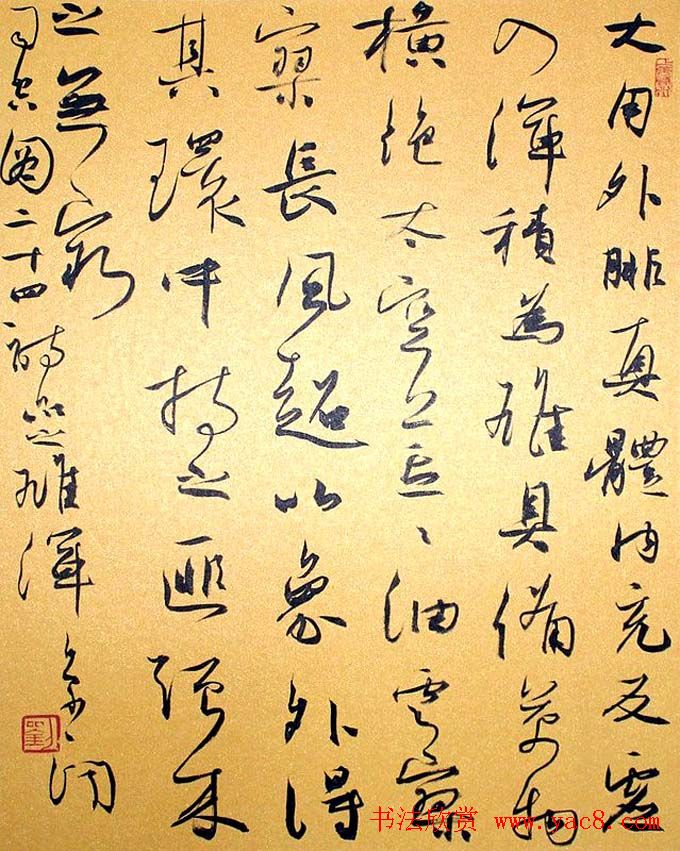 大用外腓真體内充反虛
入渾積為雄具備萬物
橫絕太空荒〻油雲寥
寥長風超以象外得
其環中持之匪強來
之無窮
司空圖二十四詩品雄渾
书法欣赏 www.yac8.com